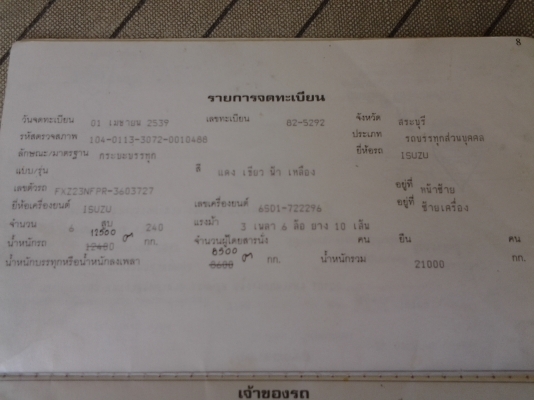 8
รายการจดทะเบียน
วันจดทะเบียน 01 เมษายน 2539 เลขทะเบียน 82-5292 จังหวัด สระบุรี
รหัสตรวจสภาพ 104-0113-3072-0010488 ประเภท รถบรรทุกส่วนบุคคล
ลักษณะ/มาตรฐาน กระบะบรรทุก ยี่ห้อรถ ISUZU
แบบ/รุ่น สี แดง เขียว ฟ้า เหลือง
เลขตัวรถ FXZ23NFPR-3603727 อยู่ที่ หน้าซ้าย
ยี่ห้อเครื่องยนต์ ISUZU เลขเครื่องยนต์ 6SD1-722296 อยู่ที่ ซ้ายเครื่อง
จำนวน 6 สูบ 240 แรงม้า 3 เพลา 6 ล้อ ยาง 10 เส้น
12500
น้ำหนักรถ 12400 กก. จำนวนผู้โดยสารนั่ง คน ยืน คน
8500
น้ำหนักบรรทุกหรือน้ำหนักลงเพลา 8600 กก. น้ำหนักรวม 21000 กก.
เจ้าของรถ